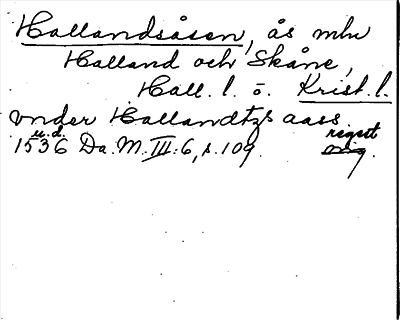 Hallandsåsen, ås mln
Halland och Skåne,
Hall. l. o. Krist. l.
vnder Hallandtzs aass
u.d. regest
1536 Da. M. III:6, s. 109. orig.